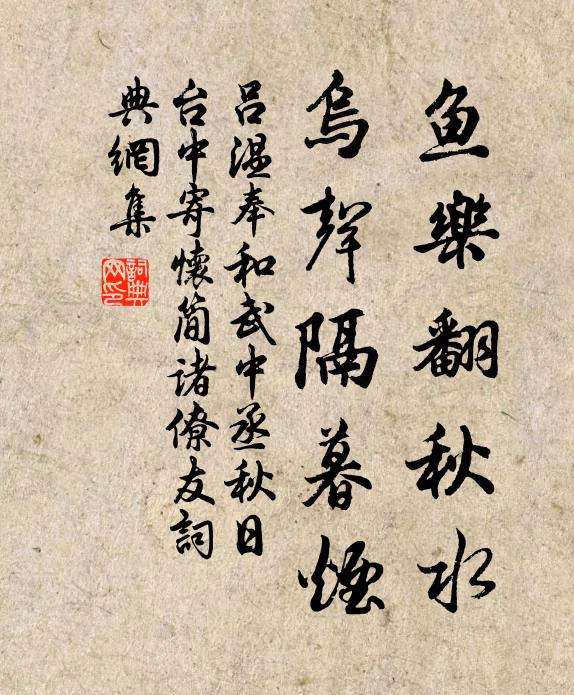 鱼樂翻秋水
烏聲隔暮煙
吕温奉和武中丞秋日
台中寄懷简诸僚友詞
典網集
詞典
网印